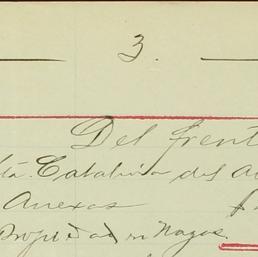 3.
Del frent
Catalina del
Anexos
Propiedad en Nazas